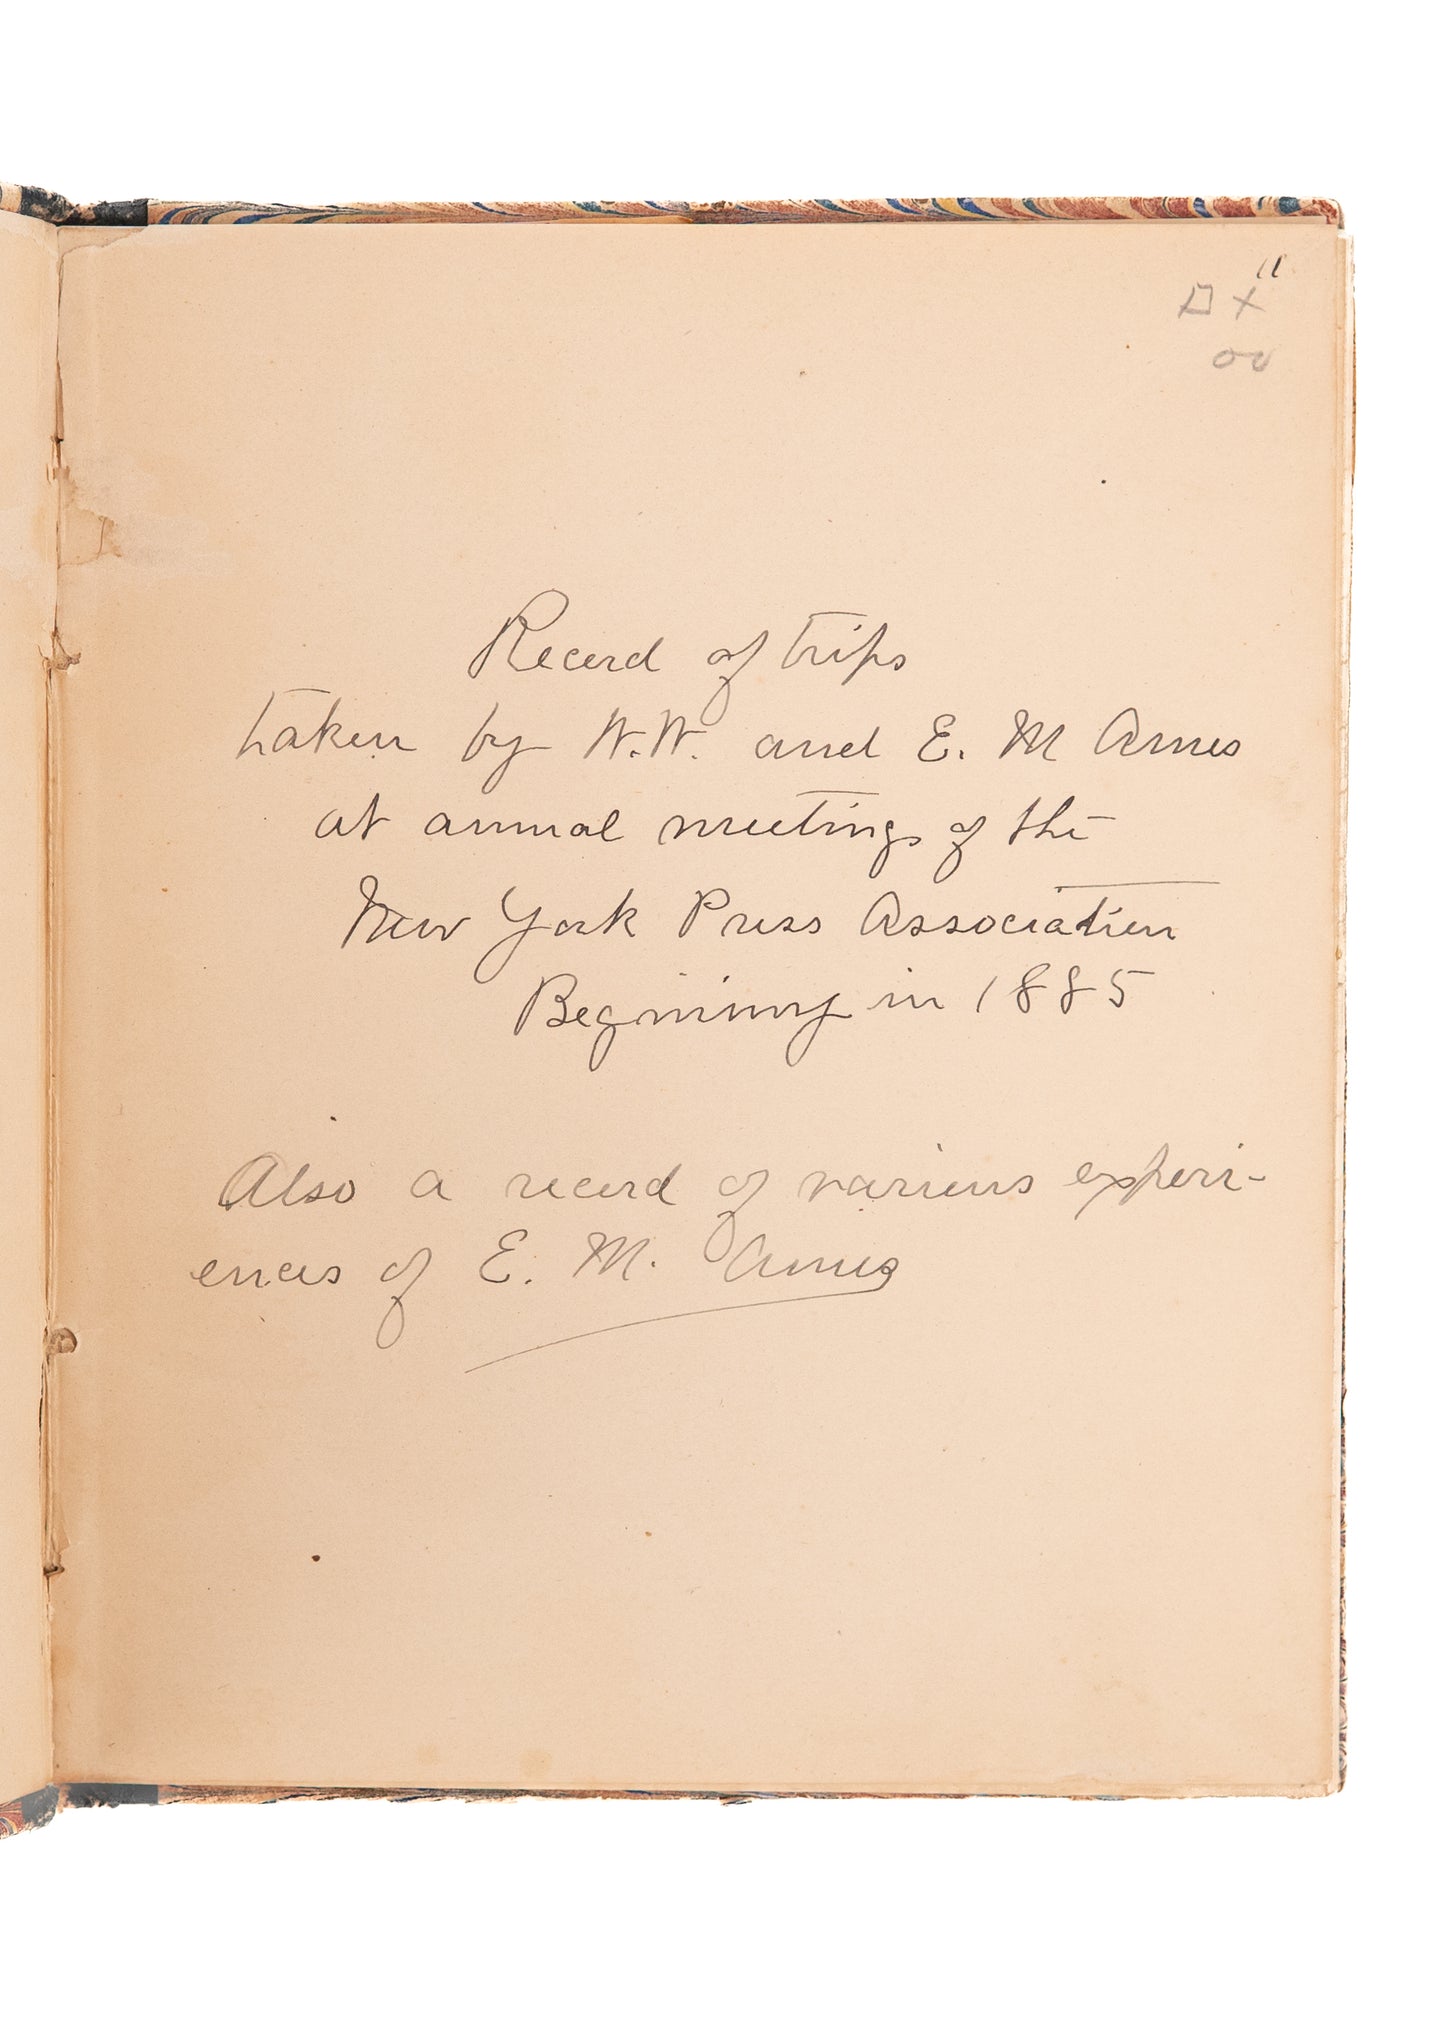 Record of trips
taken by W.W. and E. M Ames
at annual meetings of the
New York Press Association
Beginning in 1885
Also a record of various experi-
ences of E. M. Ames